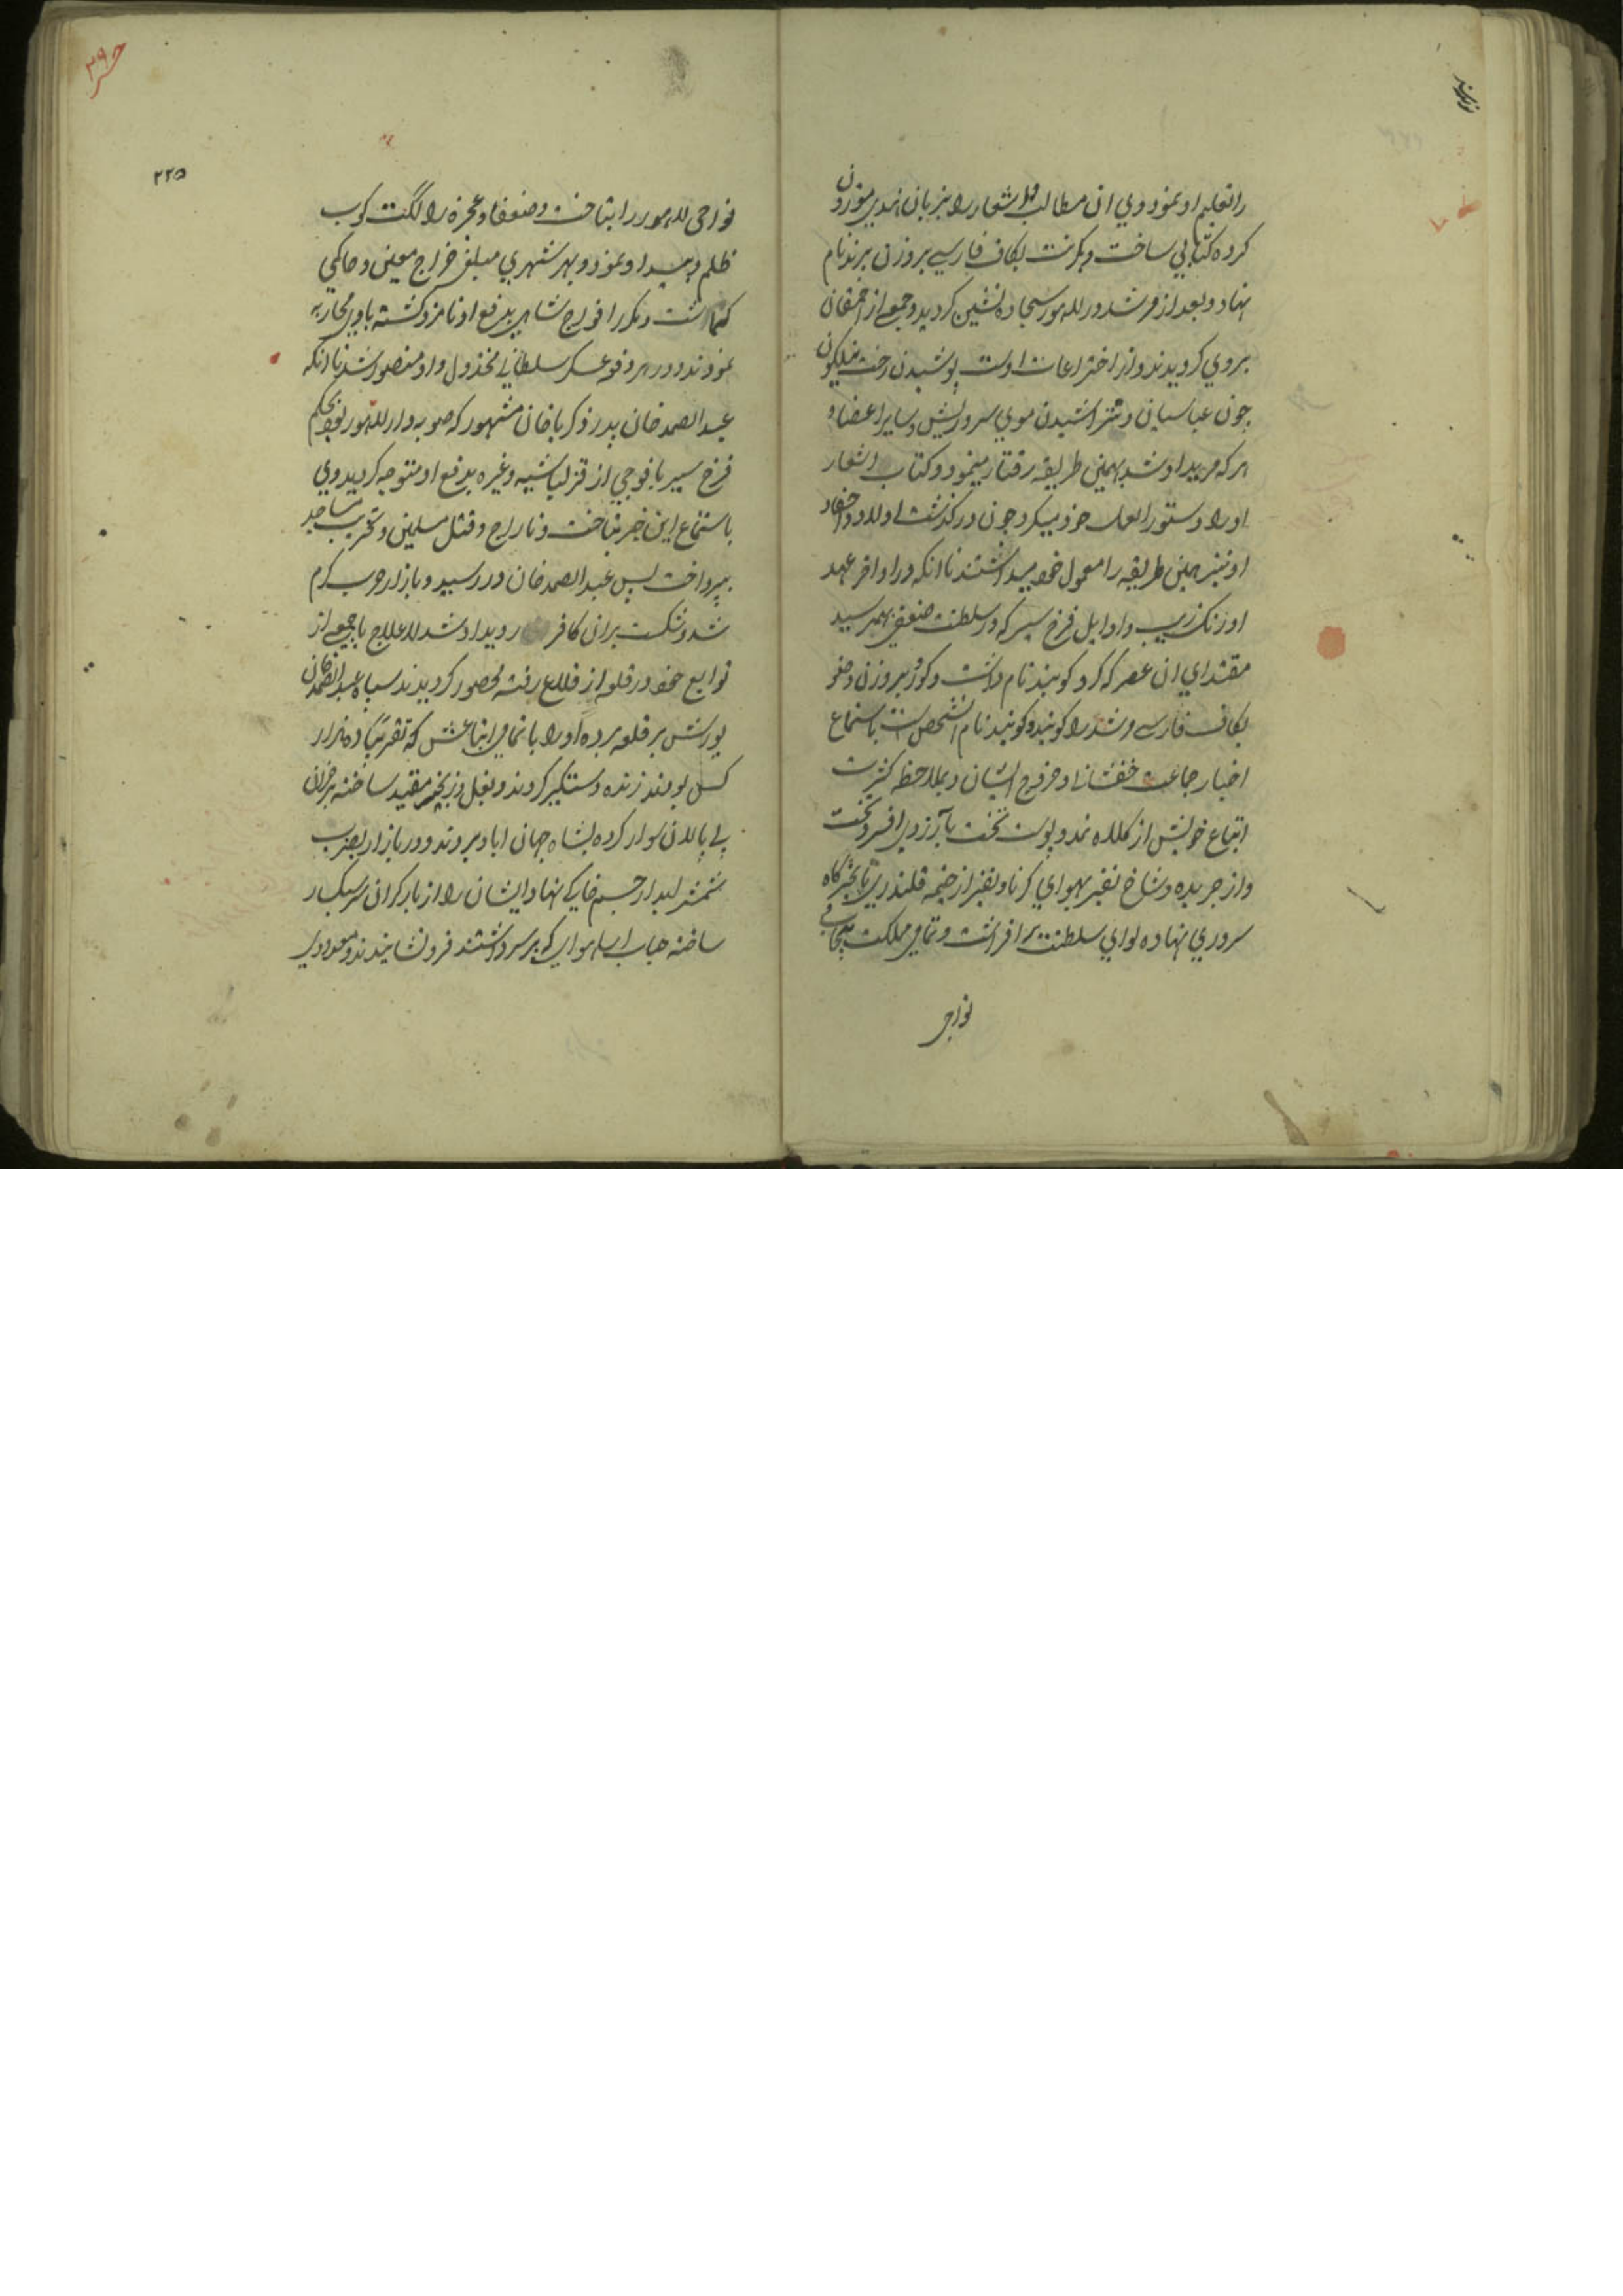 را تعلیم او نمود و وي ان مطالب و اشعار را بزبان هندي موزون
کرده کتابي ساخت و کرنت بکاف فارسي بروزن برند نام
نهاد و بعد از مرشد در لاهور سجاده نشین کردید و جمعی از احمقان
بروي کرویدند و از اختراعات اوست پوشیدن رخت نیلکون
چون عباسیان و نتراشیدن موي سر و ریش و سایر اعضا و
هر که مرید او شد بهمین طریقه رفتار مینمود و کتاب اشعار
او را دستور العمل خود میکرد چون درکذشت اولاد و احفاد
او نیز همین طریقه را معمول خود میداشتند تا انکه در اواخر عهد
اورنک زیب و اوایل فرخ سیر که در سلطنت ضعفی بهمرسید
مقتداي ان عصر که کرو کوبند نام داشت و کرو بروزن وضو
بکاف فارسي مرشد را کویند و کوبند نام انشخص است باستماع
اخبار جماعت و خروج ایشان و بملاحظه کثرت
اتباع خویش از کلاه نمد و پوست تخت بآرزوي افسر و تخت
و از جریده و شاخ نفیر بهواي کرنا و نفیر از خیمه قلندري تا بخرکاه
سروري نهاده لواي سلطنت بر افراشت و تمامي مملکت پنجاب
نواحي
۲۲۵
نواحي لاهور را بتاخت و ضعفا و عجزه را لکت کوب
ظلم و بیداد نمود و بهر شهري مبلغ خراج معین و حاکمي
کماشت و مکرر افواج شاهي بدفع او نامزد کشته با وي محاربه
نمودند و در هر دفعه عسکر سلطاني مخذول و او منصور شد تا انکه
عبد الصمد خان پدر زکریا خان مشهور که صوبه دار لاهور بود بحکم
فرخ سیر با فوجي از قزلباشیه و غیره بدفع او متوجه کردید وي
باستماع این خبر بتاخت و تاراج و قتل مسلمین و تخریب مساجد
بپرداخت پس عبد الصمد خان در رسید و بازار حرب کرم
شد و شکست بران کافر رویداد شد لاعلاج با جمعی از
توابع خود در قلعه از قلاع رفته محصور کردیدند سپاه عبد الصمد خان
یورش بر قلعه برده او را با تمامي اتباعش که تقریبًا ده هزار
کس بودند زنده دستکیر کردند و بغل و زنجیر مقید ساخته بر خران
بي پالان سوار کرده بشاه جهان اباد بردند و در بازار بضرب
شمشیر ابدار جسم خاکي نهاد ایشان را از بار کران سر سبک
ساخته حباب اسا هوایي که بر سر داشتند فرو نشانیدند و معدودي